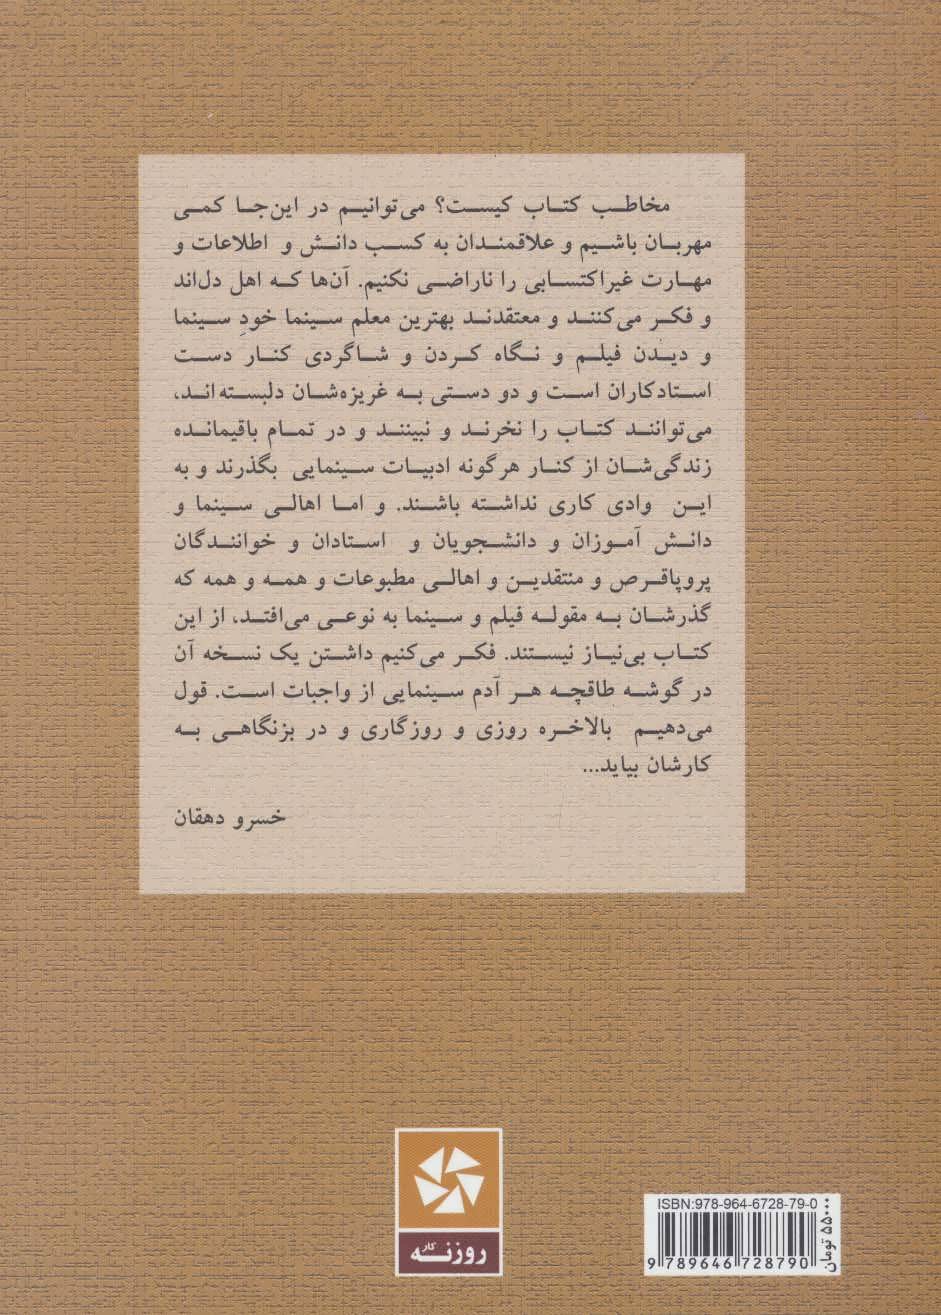 مخاطب کتاب کیست؟ می‌توانیم در این‌جا کمی
مهربان باشیم و علاقمندان به کسب دانش و اطلاعات و
مهارت غیراکتسابی را ناراضی نکنیم. آن‌ها که اهل دل‌اند
و فکر می‌کنند و معتقدند بهترین معلم سینما خودِ سینما
و دیدن فیلم و نگاه کردن و شاگردی کنار دست
استادکاران است و دو دستی به غریزه‌شان دلبسته‌اند،
می‌توانند کتاب را نخرند و نبینند و در تمام باقیمانده
زندگی‌شان از کنار هرگونه ادبیات سینمایی بگذرند و به
این وادی کاری نداشته باشند. و اما اهالی سینما و
دانش آموزان و دانشجویان و استادان و خوانندگان
پروپاقرص و منتقدین و اهالی مطبوعات و همه و همه که
گذرشان به مقوله فیلم و سینما به نوعی می‌افتد، از این
کتاب بی‌نیاز نیستند. فکر می‌کنیم داشتن یک نسخه آن
در گوشه طاقچه هر آدم سینمایی از واجبات است. قول
می‌دهیم بالاخره روزی و روزگاری و در بزنگاهی به
کارشان بیاید...
خسرو دهقان
روزنه کار
ISBN:978-964-6728-79-0
9 789646 728790
۵۵۰۰۰ تومان